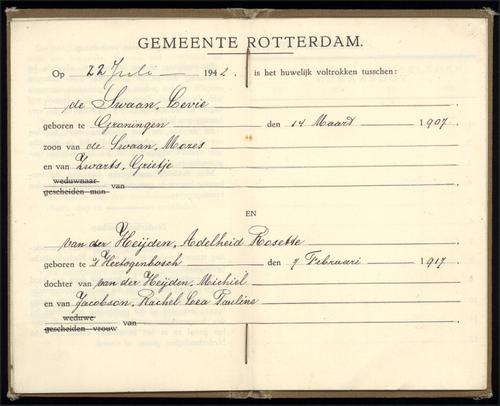 GEMEENTE ROTTERDAM.
Op 22 Juli 1942. is het huwelijk voltrokken tusschen:
de Swaan, Levie
geboren te Groningen den 14 Maart 1907
zoon van de Swaan, Mozes
en van Zwarts, Grietje
weduwnaar
gescheiden man van
EN
van der Heijden, Adelheid Rosette
geboren te 's Hertogenbosch den 7 Februari 1917
dochter van van der Heijden, Michiel
en van Jacobson, Rachel Lea Pauline
weduwe
gescheiden vrouw van